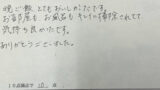 晩ご飯 とてもおいしかったです。
お部屋も お風呂も キレイに掃除されてて
気持ち良かったです。
ありがとうございました。
10点満点で 10 点